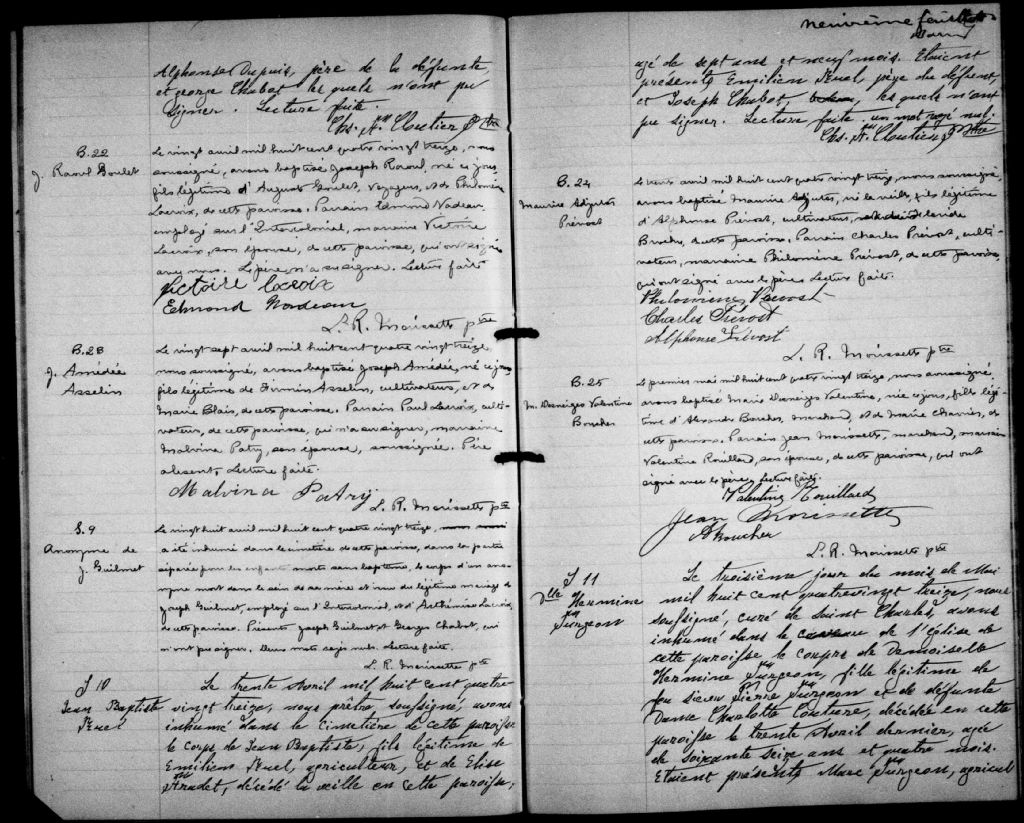 Alphonse Dupuis, père de la défunte,
et george Chabot les quels n'ont pu
signer. Lecture faite.
Chs. A. Cloutier Ptre
B.22
J. Raoul Goulet
Le vingt avril mil huit cent quatre vingt treize, nous
soussigné, avons baptisé Joseph Raoul, né ce jour,
fils légitime d'Auguste Goulet, voyageur, et de Philomène
Lacroix, de cette paroisse. Parrain Edmond Nadeau,
employé sur l'Intercolonial, marraine Victoire
Lacroix, son épouse, de cette paroisse, qui ont signé
avec nous. Le père n'a su signer. Lecture faite
Victoire Lacroix
Edmond Nadeau
L. R. Morissette ptre
B.23
J. Amédée
Asselin
Le vingt sept avril mil huit cent quatre vingt treize,
nous soussigné, avons baptisé Joseph Amédée, né ce jour,
fils légitime de Firmin Asselin, cultivateur, et de
Marie Blais, de cette paroisse. Parrain Paul Lacroix, culti-
vateur, de cette paroisse, qui n'a su signer, marraine
Malvina Patry, son épouse, soussignée. Père
absent, Lecture faite.
Malvina Patry
L. R. Morissette ptre
S.9
Anonyme de
J. Guilmet
Le vingt huit avril mil huit cent quatre vingt treize,
a été inhumé dans le cimetière de cette paroisse, dans la partie
séparée pour les enfants morts sans baptême, le corps d'un ano-
nyme mort dans le sein de sa mère et issu du légitime mariage de
Joseph Guilmet, employé sur l'Intercolonial, et d'Arthémise Lacroix,
de cette paroisse. Présents Joseph Guilmet et Georges Chabot, qui
n'ont pu signer. Deux mots rayés nuls. Lecture faite.
L. R. Morissette ptre
S 10
Jean Baptiste
Ruel
Le trente Avril mil huit cent quatre
vingt treize, nous prêtre, soussigné, avons
inhumé dans le cimetière de cette paroisse
le corps de Jean Baptiste, fils légitime de
Emilien Ruel, agriculteur, et de Elise
Audet, décédé la veille en cette paroisse,
neuvième feuillet
agé de sept ans et neuf mois. Etaient
présents Emilien Ruel père du défunt,
et Joseph Chabot, les quels n'ont
pu signer. Lecture faite. un mot rayé nul.
Chs. A. Cloutier Ptre
B.24
Maurice Adjutor
Prévost
Le trente avril mil huit cent quatre vingt treize, nous soussigné,
avons baptisé Maurice Adjutor, né la veille, fils légitime
d'Alphonse Prévost, cultivateur, et de Adélaïde
Boucher, de cette paroisse. Parrain Charles Prévost, culti-
vateur, marraine Philomène Prévost, de cette paroisse,
qui ont signé avec le père. Lecture faite.
Philomène Prévost
Charles Prévost
Alphonse Prévost
L. R. Morissette ptre
B.25
M. Desneiges Valentine
Boucher
Le premier mai mil huit cent quatre vingt treize, nous soussigné,
avons baptisé Marie Desneiges Valentine, née ce jour, fille légi-
time d'Alexandre Boucher, marchand, et de Marie, de
cette paroisse. Parrain Jean Morissette, marchand, marraine
Valentine Rouillard, son épouse, de cette paroisse, qui ont
signé avec le père. Lecture faite.
Valentine Rouillard
Jean Morissette
A Boucher
L. R. Morissette ptre
S 11
Dlle Hermine
Turgeon
Le troisième jour du mois de Mai
mil huit cent quatrevingt treize, nous
soussigné, curé de Saint Charles, avons
inhumé dans le caveau de l'église de
cette paroisse le corps de Demoiselle
Hermine Turgeon, fille légitime de
feu sieur Pierre Turgeon et de défunte
Dame Charlotte Couture, décédée en cette
paroisse le trente Avril dernier, agée
de soixante seize ans et quatre mois.
Etaient présents Marc Turgeon, agricul